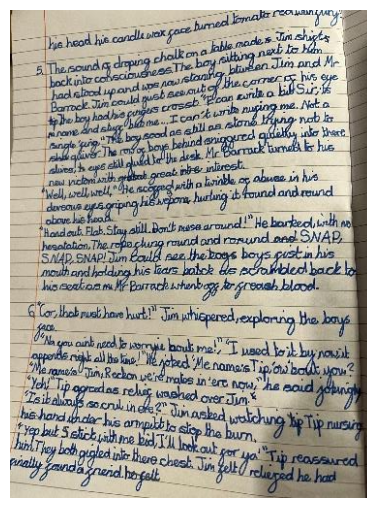 his head his candle wax face turned tomato red
5. The sound of droping chalk on a table made s Jim shift
back into consciousness. The boy sitting next to him
had stood up and was now staring btween Jim and Mr
Barrack. Jim could just see out of the corner of his eye
the boy had his fingers crosst. "I can write a bit Sir, is
name and stuff like me... I can't write nufing me. Not a
single fing." The boy sood as still as stone trying not to
shiver. The row of boys behind sniggered quietly into there
sleves, ts eyes still glued to the desk. Mr Barrack turned to his
new victem with great intre interest.
"Well, well, well," He scoffed with a twinkle of abuse in his
devious eyes griping his wepone, hurling it round and round
above his head.
"Hand out. Flat. Stay still. Don't muse around!" He barked, with no
hesatation. The rope clung round and around and SNAP,
SNAP, SNAP! Jim could see the boys fist in his
mouth and holding his tears batck as scrambled back to
his seat as Mr Barrack when off for greash blood.
6. "Cor, that must have hurt!" Jim whispered, exploring the boys
face.
"Na you aint need to worry 'bout me!", "I used to it by now it
appends right all the time!" He joked "Me name's Tip, ow 'bout you?
"Me name's Jim, Reckon we're mates in 'ere now," he said jokingly
"Yeh!" Tip agreed as relief washed over Jim.
"Is it always so crul in ere?" Jim asked watching Tip nursing
his hand under his armpit to stop the burn.
"Yep but stick with me kid, I'll look out for ya!" Tip reassured
him. They both gigled into there chest. Jim felt relieved he had
finally found a friend. he felt